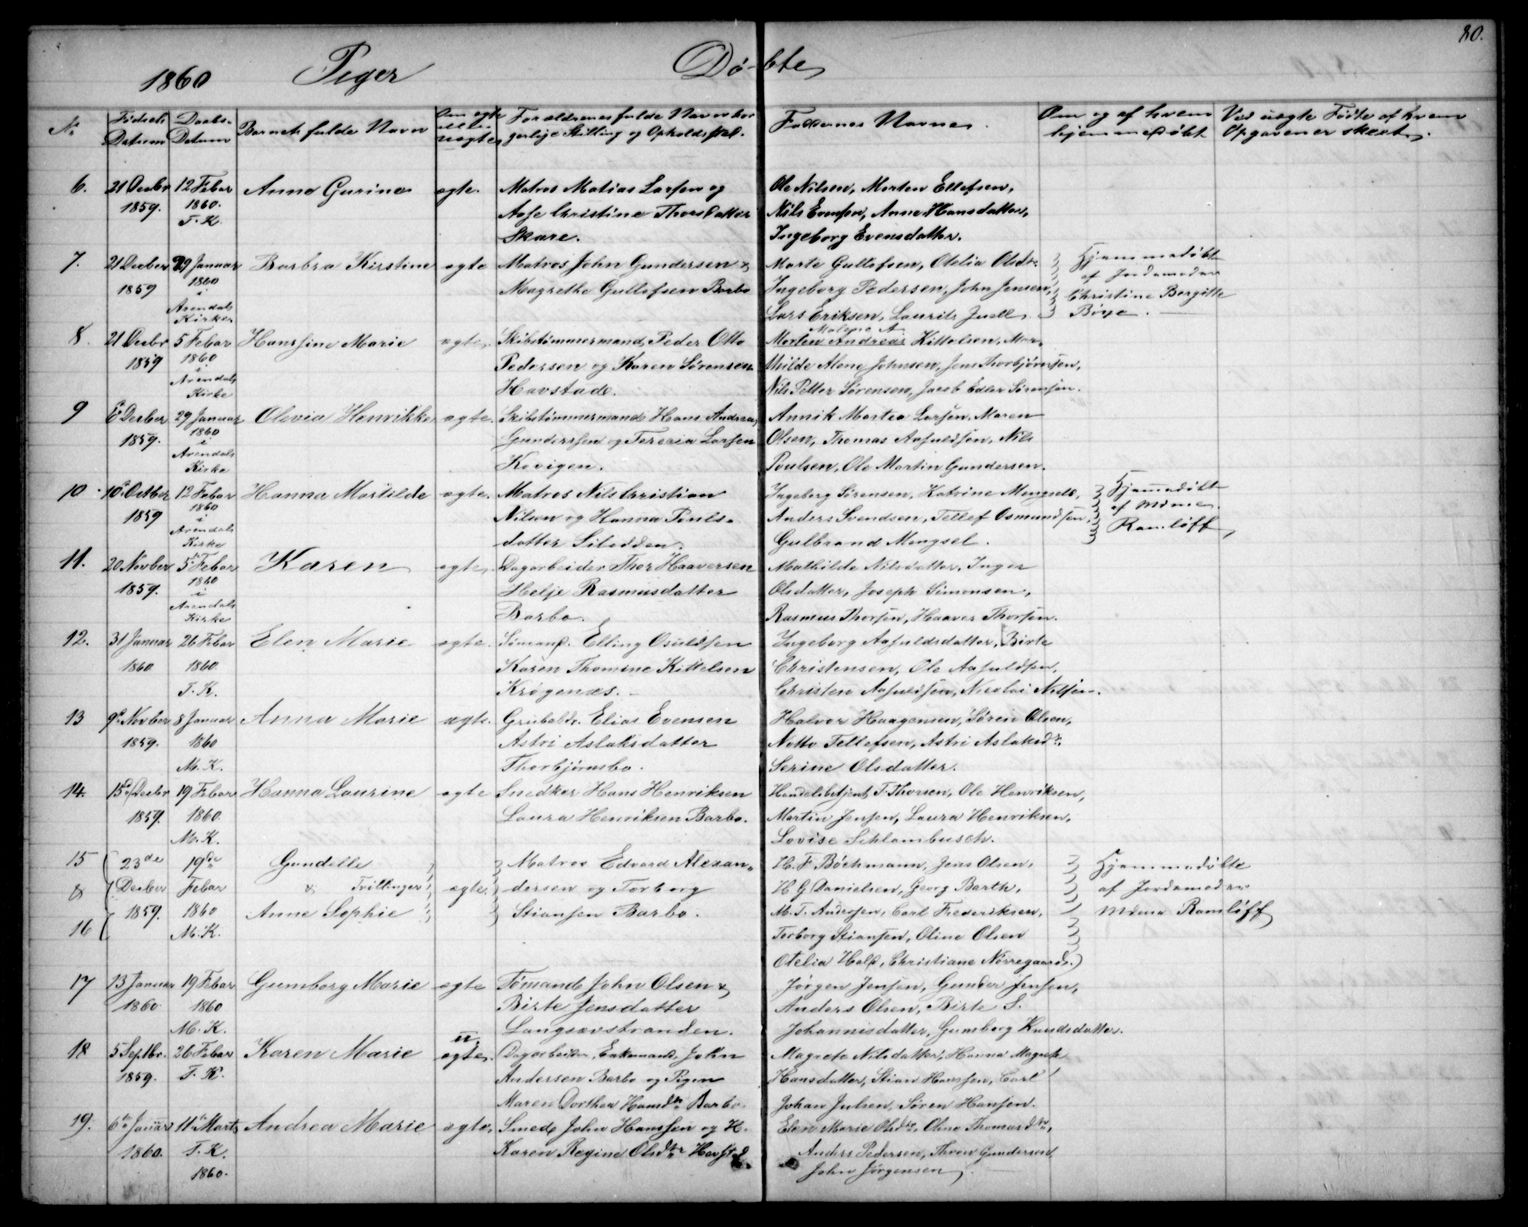 80.
1860 Piger Døbte
No Fødsels Datum Daabs- Datum Barnets fulde Navn Om egte eller uegte Forældrenes fulde Navn bor-
gerlige Stilling og Opholdsted. Faddernes Navne. Om og af hvem
hjemmedøbt Ved uegte Fødte af hvem
Opgaven er skeet.
6. 21 Decbr 12 Febar Anne Gurine egte. Matros Matias Larsen og Ole Nilsen, Morten Ellefsen,
1859. 1860. Aase Christine Thorsdatter Nils Evensen, Anne Hansdatter,
T. K. Skare. Ingeborg Evensdatter.
7. 21 Decber 29 Januar Barbra Kirstine egte Matros John Gundersen & Marte Gullofsen, Otelia Olsdr Hjemmedøbt
1859 1860 Magrethe Gullofsen Barbo Ingeborg Pedersen, John Jensen, af Jordemoder
i Arendals Kirke Lars Eriksen, Laurits Juell Christine Bergitte
Bøye.
8. 21 Decbr 5 Febar Hansine Marie egte. Skibstømmermand Peder Otto Morten Andreas Kittelsen, Mar-
1859 1860 Pedersen og Karen Sørensen thilde Alene Johnsen, Jens Thorbjørnsen,
i Arendals Kirke Havstade. Nils Petter Sørensen, Jacob Edler Sørensen.
9 6 Decber 29 Januar Olevia Henrikke egte. Skibstømmermand Hans Andreas Annik Martea Larsen, Maren
1859. 1860 Gunderssen og Tereria Larsen Olsen, Thomas Aasuldsen, Nils
i Arendals Kirke Kevigen. Poulsen, Ole Martin Gundersen.
10 10 Octber 12 Febar Hanna Martilde egte. Matros Nils Christian Ingeborg Sørensen, Katrine Mengsel, Hjemmedøbt
1859 1860 Nilsen og Hanna Pouls- Anders Svendsen, Tellef Osmundsen, af Mdme
i Arendals Kirke datter Silodden. Gulbrand Mengsel. Ramløff,
11. 20 Novber 5 Febar Karen egte. Dagarbeider Thor Haaversen Mathilde Nilsdatter, Inger
1859. 1860 Helje Rasmusdatter Olsdatter, Joseph Simonsen,
i Arendals Kirke Barbo. Rasmus Thorsen, Haaver Thorsen.
12. 31 Januar 26 Febar Elen Marie egte. Sømand. Elling Osuldsen Ingeborg Aasuldsdatter, Birte
1860 1860. Karen Thomine Kittelsen Christensen, Ole Aasuldsen,
T. K. Krøgenæs. Christen Aasuldsen, Nicolai Nilsen.
13 9 Novber 8 Januar Anna Marie egte. Grubeldr. Elias Evensen Halvor Haagensen, Søren Olsen,
1859. 1860 Astri Aslaksdatter Notto Tellefsen, Astri Aslaksdr.
M. K. Thorbjørnsbo. Serine Olsdatter.
14. 15 Decbr 19 Febar Hanna Laurine egte Snedker Hans Henriksen Handelsbetjent T Thorsen, Ole Henriksen,
1859. 1860. Laura Henriksen Barbo. Martin Jensen, Laura Henriksen,
M. K. Lovise Schlambusch.
15 23de 19de Gundelle Matros Edvard Alexan- H. F. Bøckmann, Jens Olsen, Hjemmedøbte
& Decber Febar & Tvillinger egte dersen og Torborg H G Danielsen, Georg Barth, af Jordemoder
1859. 1860 Anne Sophie Stiansen Barbo. M. T. Andersen, Carl Frederiksen, Mdme Ramløff
16 M. K. Torborg Stiansen, Oline Olsen
Otelia Holst, Christiane Nørregaard.
17 13 Januar 19 Febar Gumborg Marie egte Tømand John Olsen & Jørgen Jensen, Gunder Jensen,
1860 1860 Birte Jensdatter Anders Olsen, Birte S.
M. K. Langsævstranden. Johannisdatter, Gumborg Knudsdatter.
18 5 Septbr. 26 Febar Karen Marie u egte. Dagarbeider, Enkemand John Magrete Nilsdatter, Hanna Magrete
1859. T. K. Andersen Barbo og Pigen Hansdatter, Stian Hansen, Carl
Maren Dorthea Hansdtr Barbo. Johan Julsen, Søren Hansen.
19. 6te Januar 11te Marts Andrea Marie egte. Smed John Hanssen og H. Elen Marie Olsdtr, Oline Thomasdtr,
1860. T. K. Karen Regine Olsdtr Havsted Anders Pedersen, Thron Gundersen
1860. John Jørgensen.